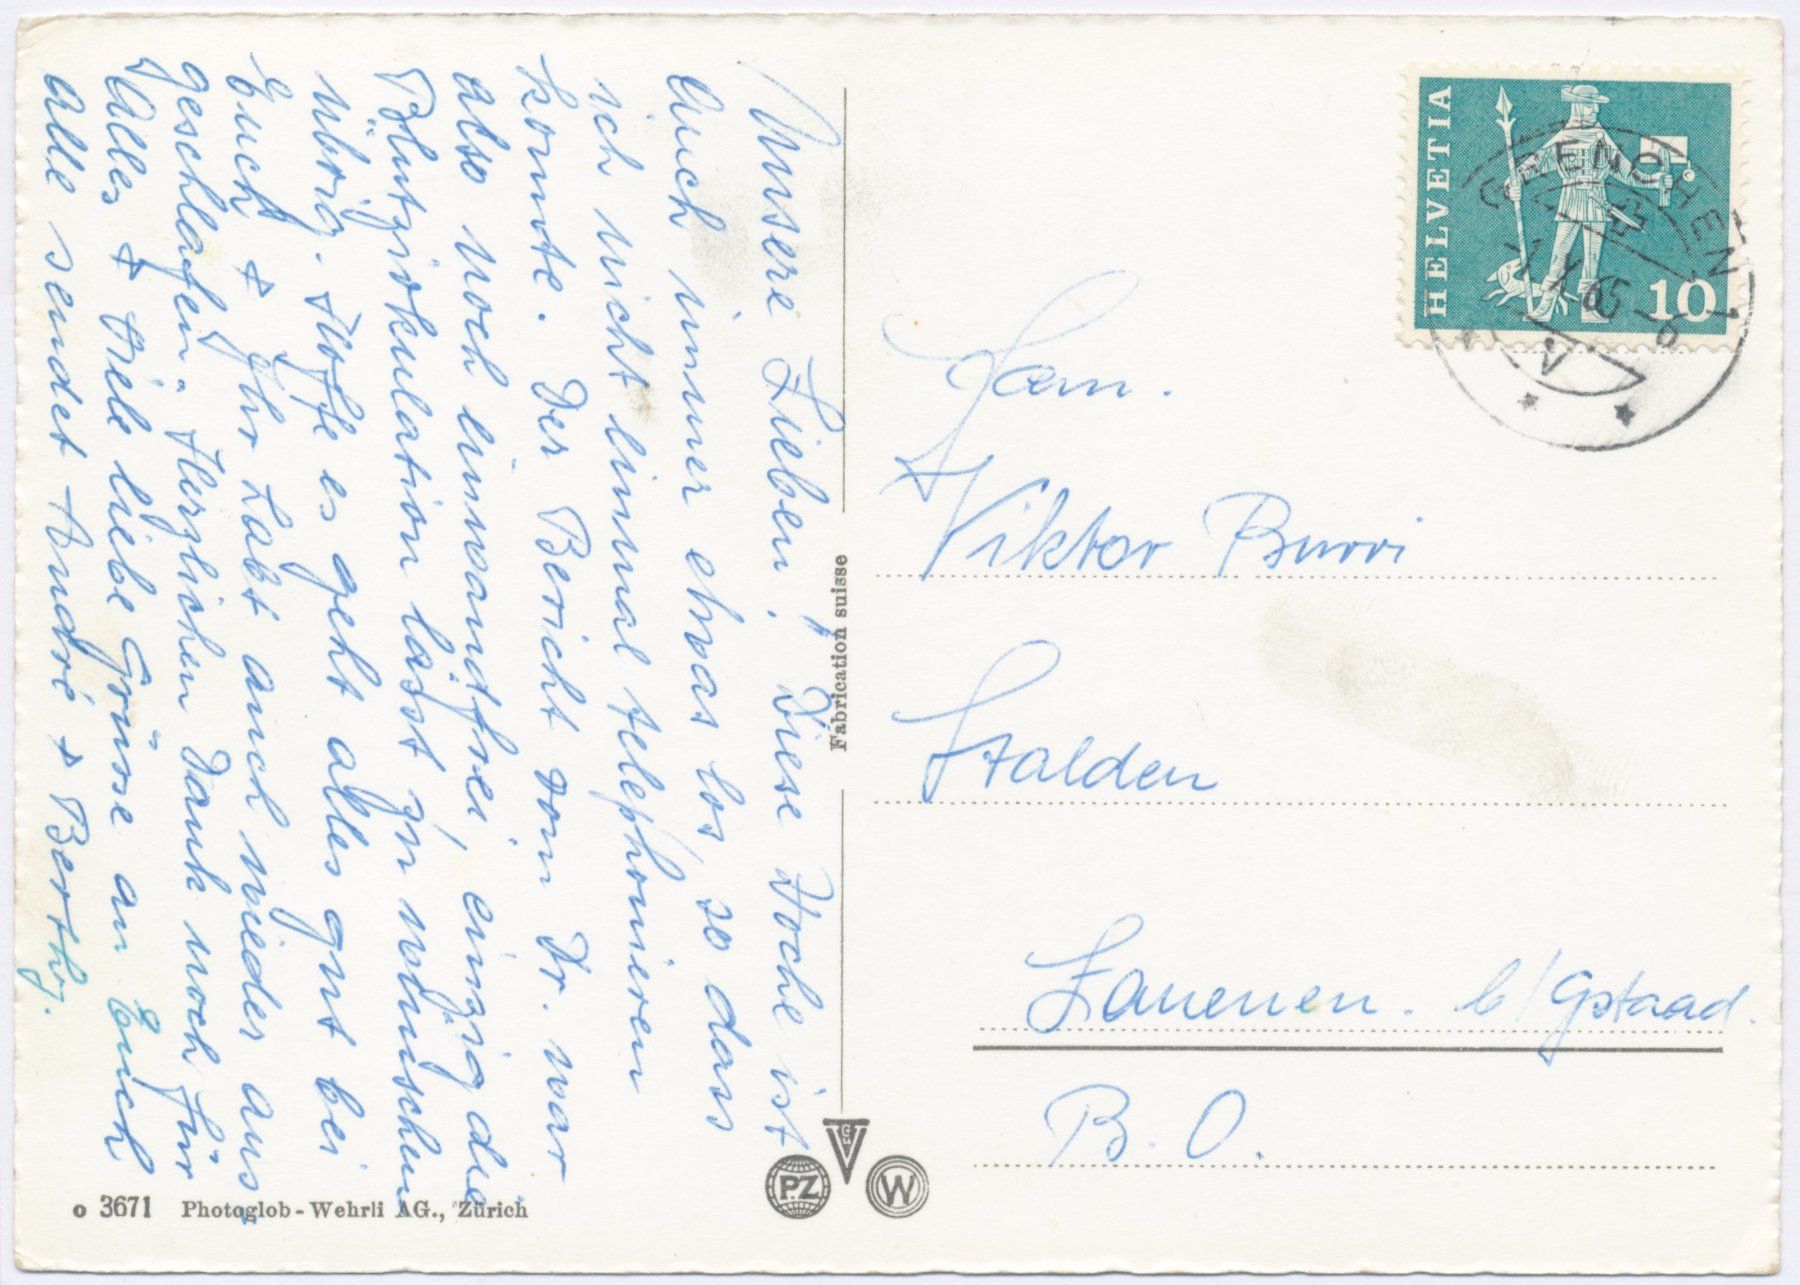 Unsere Lieben! Diese Woche ist
auch immer etwas los, so dass
ich nicht einmal telephonieren
konnte. Der Bericht vom Dr. war
also noch einwandfrei, einzig die
Blutzirkulation lässt zu wünschen
übrig. Hoffe es geht alles gut bei
Euch & Ihr habt auch wieder aus-
geschlafen. Herzlichen Dank noch für
Alles & viele liebe Grüsse an Euch
alle sendet André & Berthy.
Fabrication suisse
o 3671 Photoglob-Wehrli AG., Zürich
PZ
W
HELVETIA
10
GRENCHEN 1
Fam.
Viktor Burri
Stalden
Lauenen. b/Gstaad.
B.O.